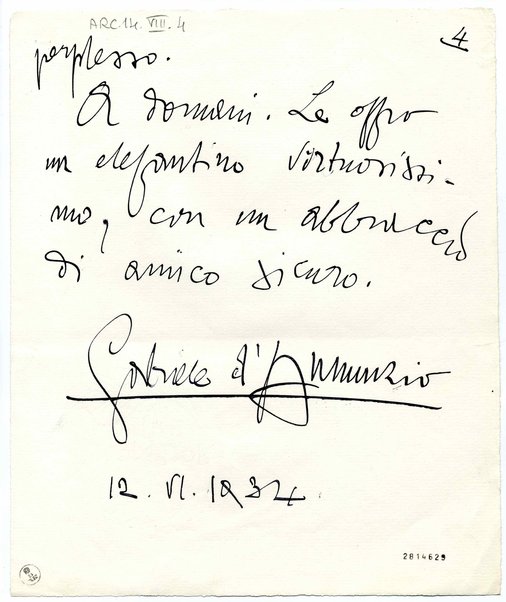 ARC.14.VIII.4
4
perplesso.
A domani. Le offro
un elefantino virtuosissi-
mo, con un abbraccio
di amico sicuro.
Gabriele d'Annunzio
12. VI. 1934
2814629